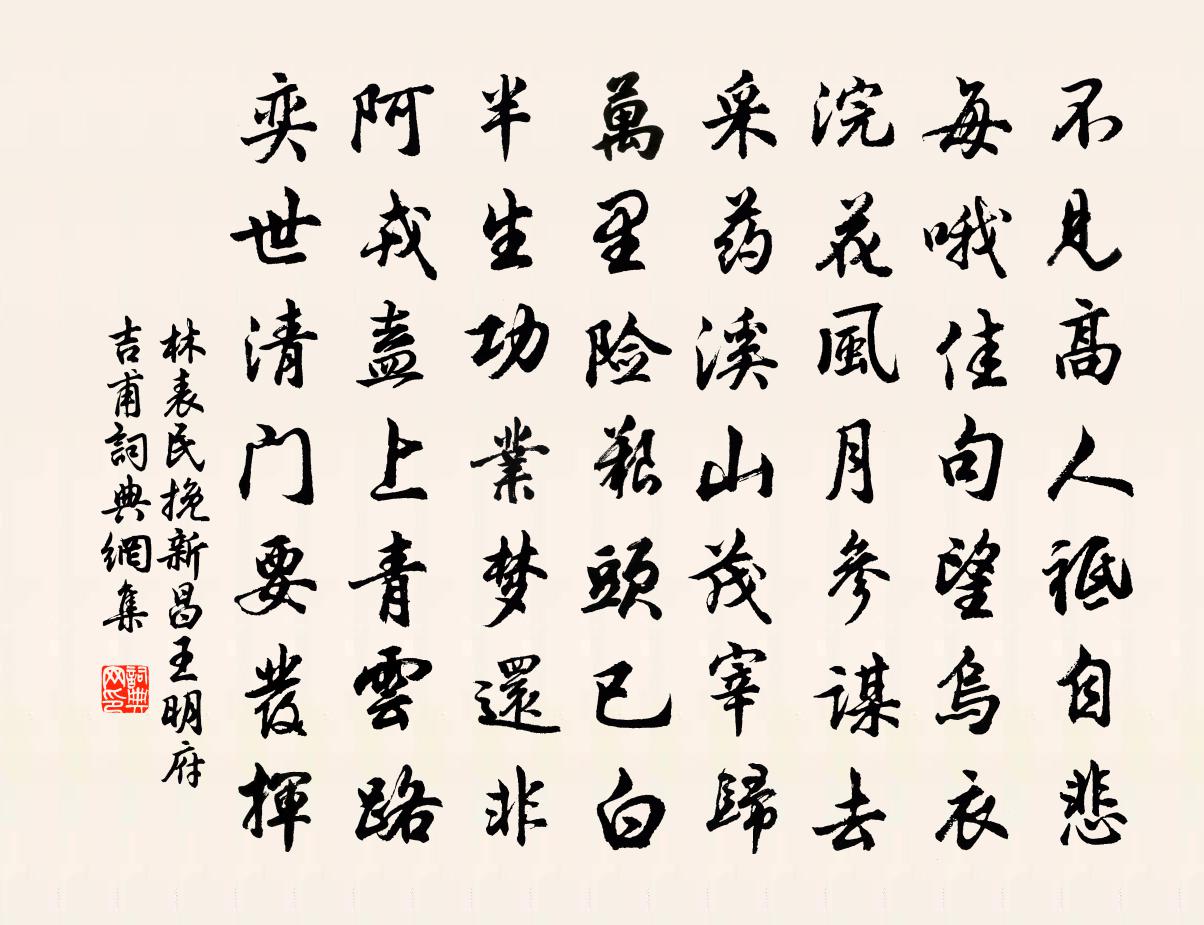 不見高人祗自悲
每哦佳句望烏衣
浣花風月參謀去
采药溪山茂宰歸
萬里险艱頭已白
半生功業梦還非
阿戎盍上青雲路
奕世清门要發揮
林表民挽新昌王明府
吉甫詞典網集
詞典
网印